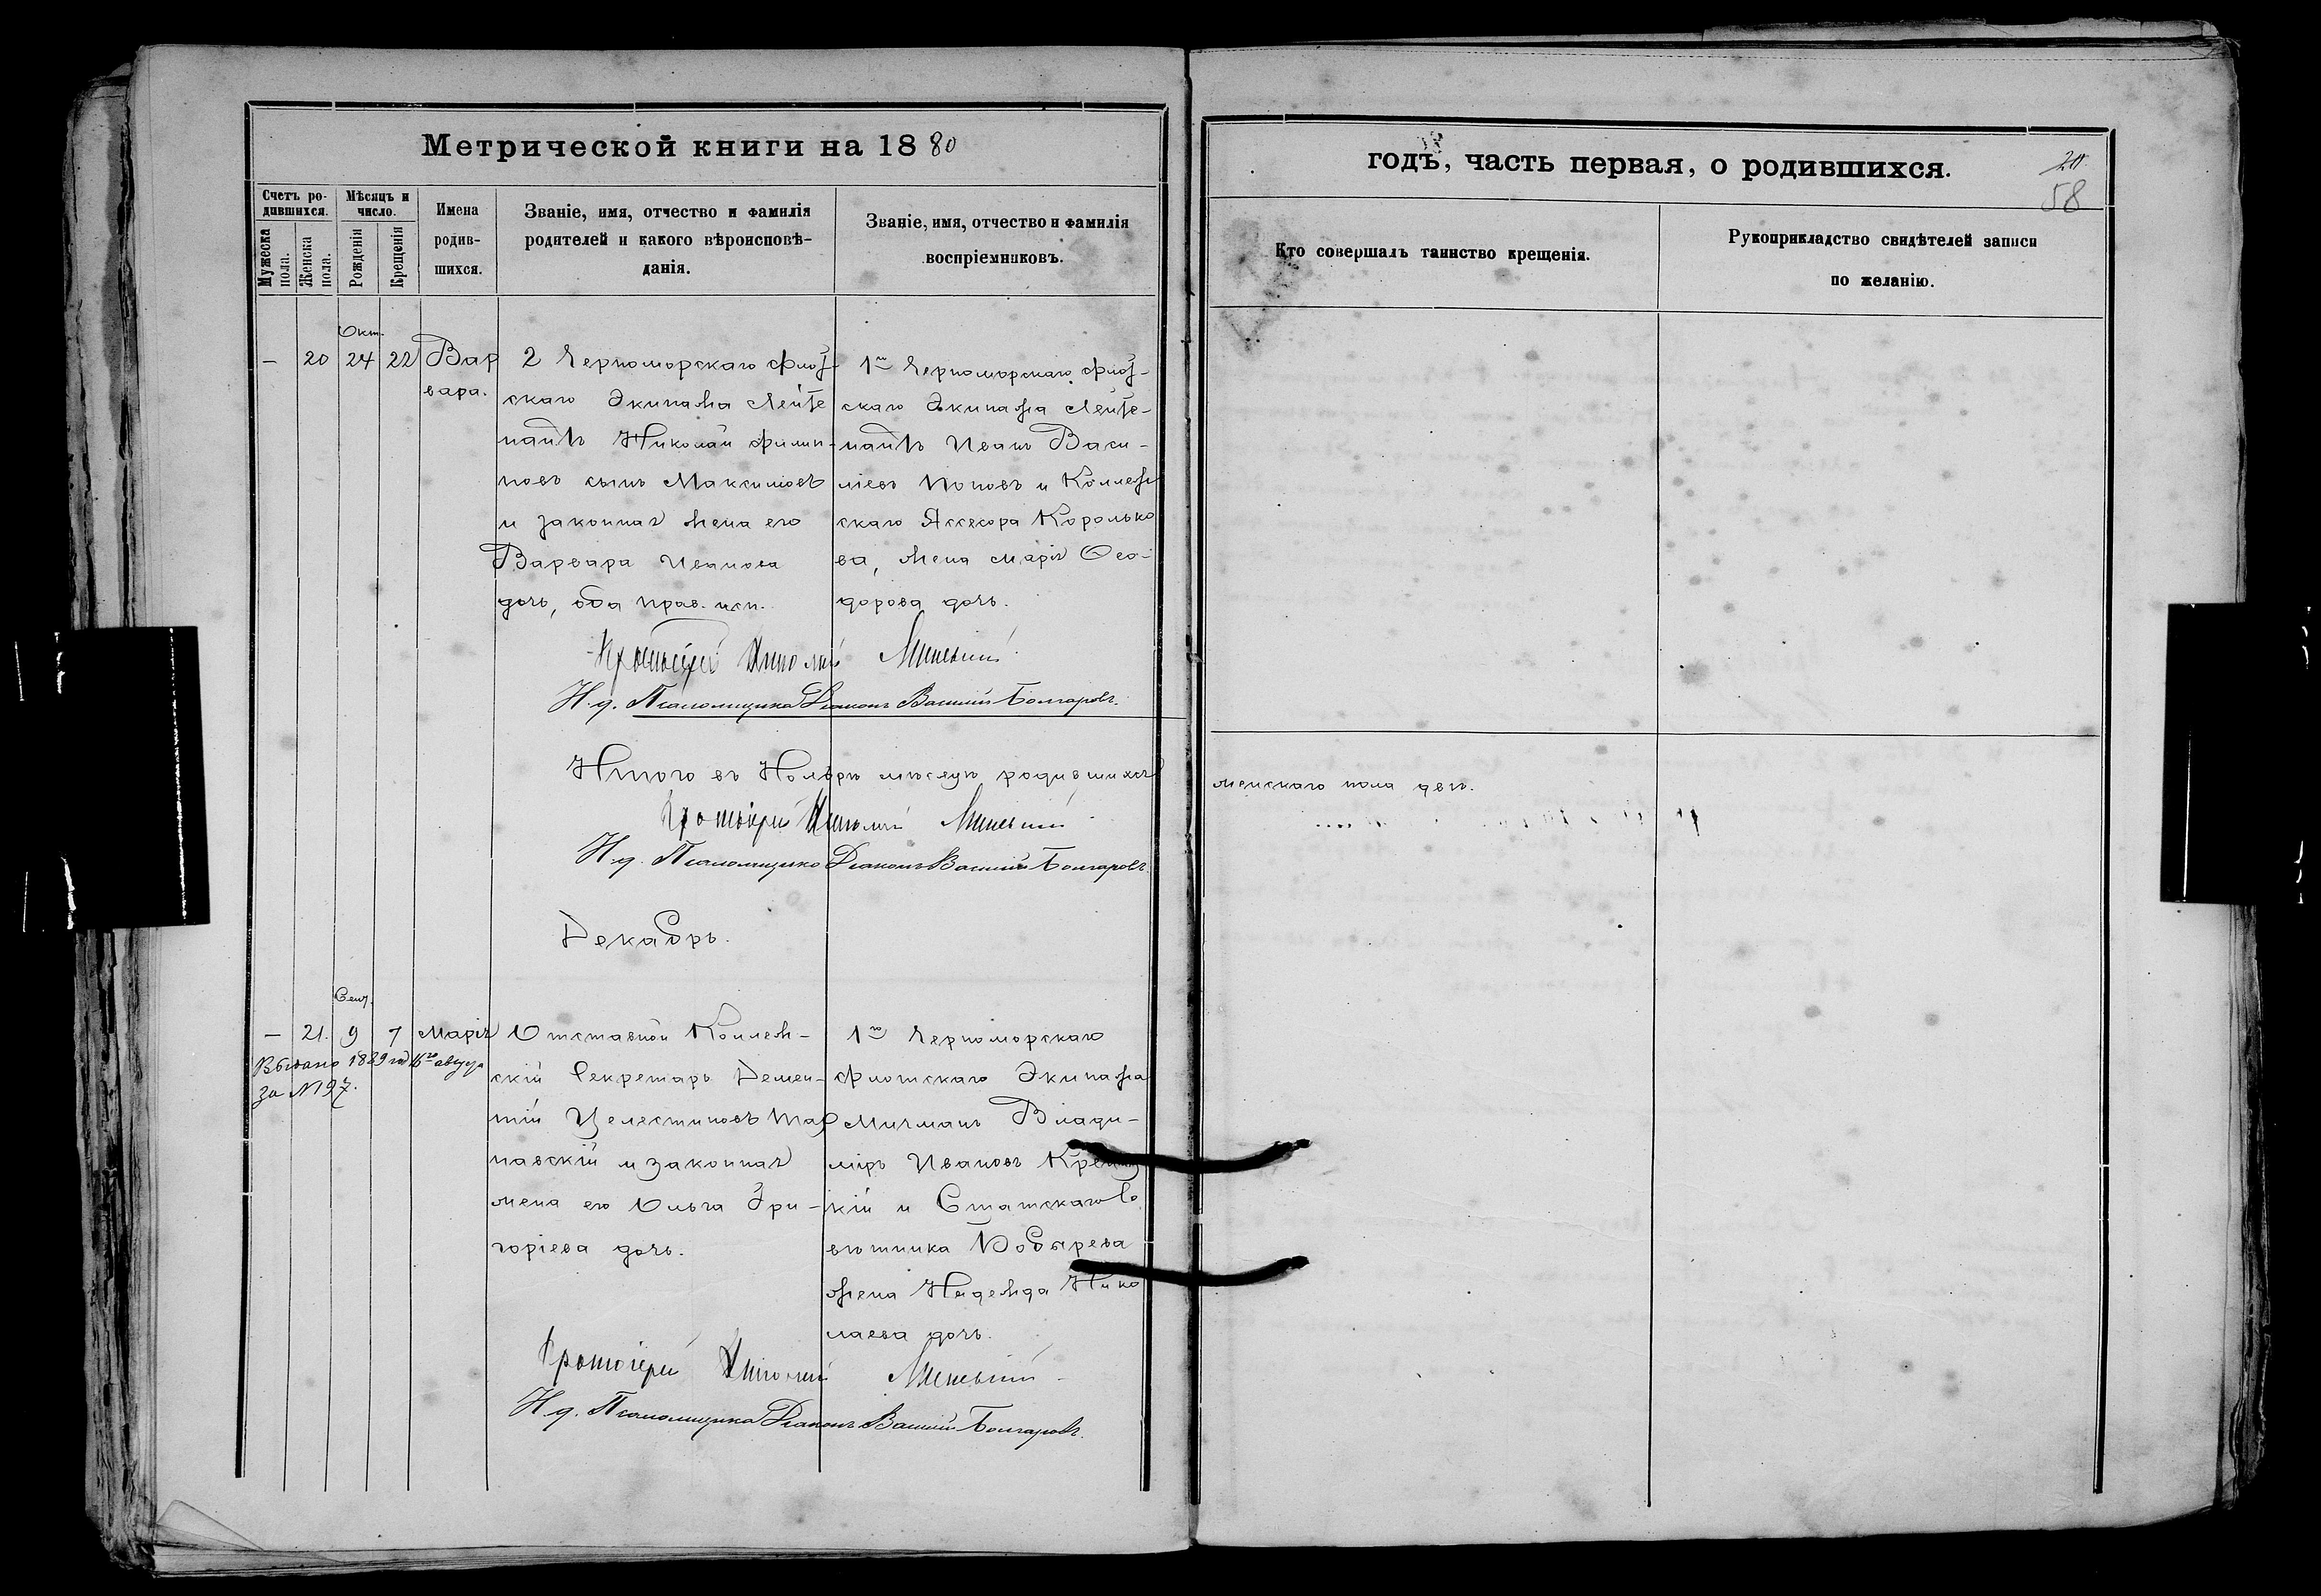 Метрической книги на 1880
годъ, часть первая, о родившихся.
20
58
Счетъ ро-
дившихся.
Мужеска
пола.
Женска
пола.
Мѣсяцъ и
число.
Рожденія
Крещенія
Имена
родив-
шихся.
Званіе, имя, отчество и фамилія
родителей и какого вѣроисповѣ-
данія.
Званіе, имя, отчество и фамилія
воспріемниковъ.
Кто совершалъ таинство крещенія.
Рукоприкладство свидѣтелей записи
по желанію.
Окт.
— 20 24 22
Вар
вара.
2 Черноморскаго флот-
скаго Экипажа Лейте
нантъ Николай Филип-
повъ сынъ Максимовъ
и законная жена его
Варвара Иванова
дочь, оба прав. исп.
1го Черноморскаго флот-
скаго Экипажа Лейте-
нантъ Иванъ Васи-
ліевъ Поповъ и Коллеж
скаго Ассесора Королько
ва, жена Марія Ѳео-
дорова дочь.
Протоіерей
И. д. Псаломщика Діаконъ Василій Болгаровъ.
Итого въ Ноябрѣ мѣсяцѣ родившихся
женскаго пола двѣ.
Протоіерей
И. д. Псаломщика Діаконъ Василій Болгаровъ.
Декабрь.
Сент.
— 21. 9 7 Марія
Выдано 1889 го 16го августа
за № 97.
Отставной Коллеж-
скій Секретарь Демен-
тій Целестиновъ Тар
навскій и законная
жена его Ольга Гри-
горіева дочь.
1го Черноморскаго
флотскаго Экипажа
Мичманъ Влади-
міръ Ивановъ
кій и Статскаго Со
вѣтника Бобырева
жена Надежда Нико
лаева дочь.
Протоіерей
И. д. Псаломщика Діаконъ Василій Болгаровъ.